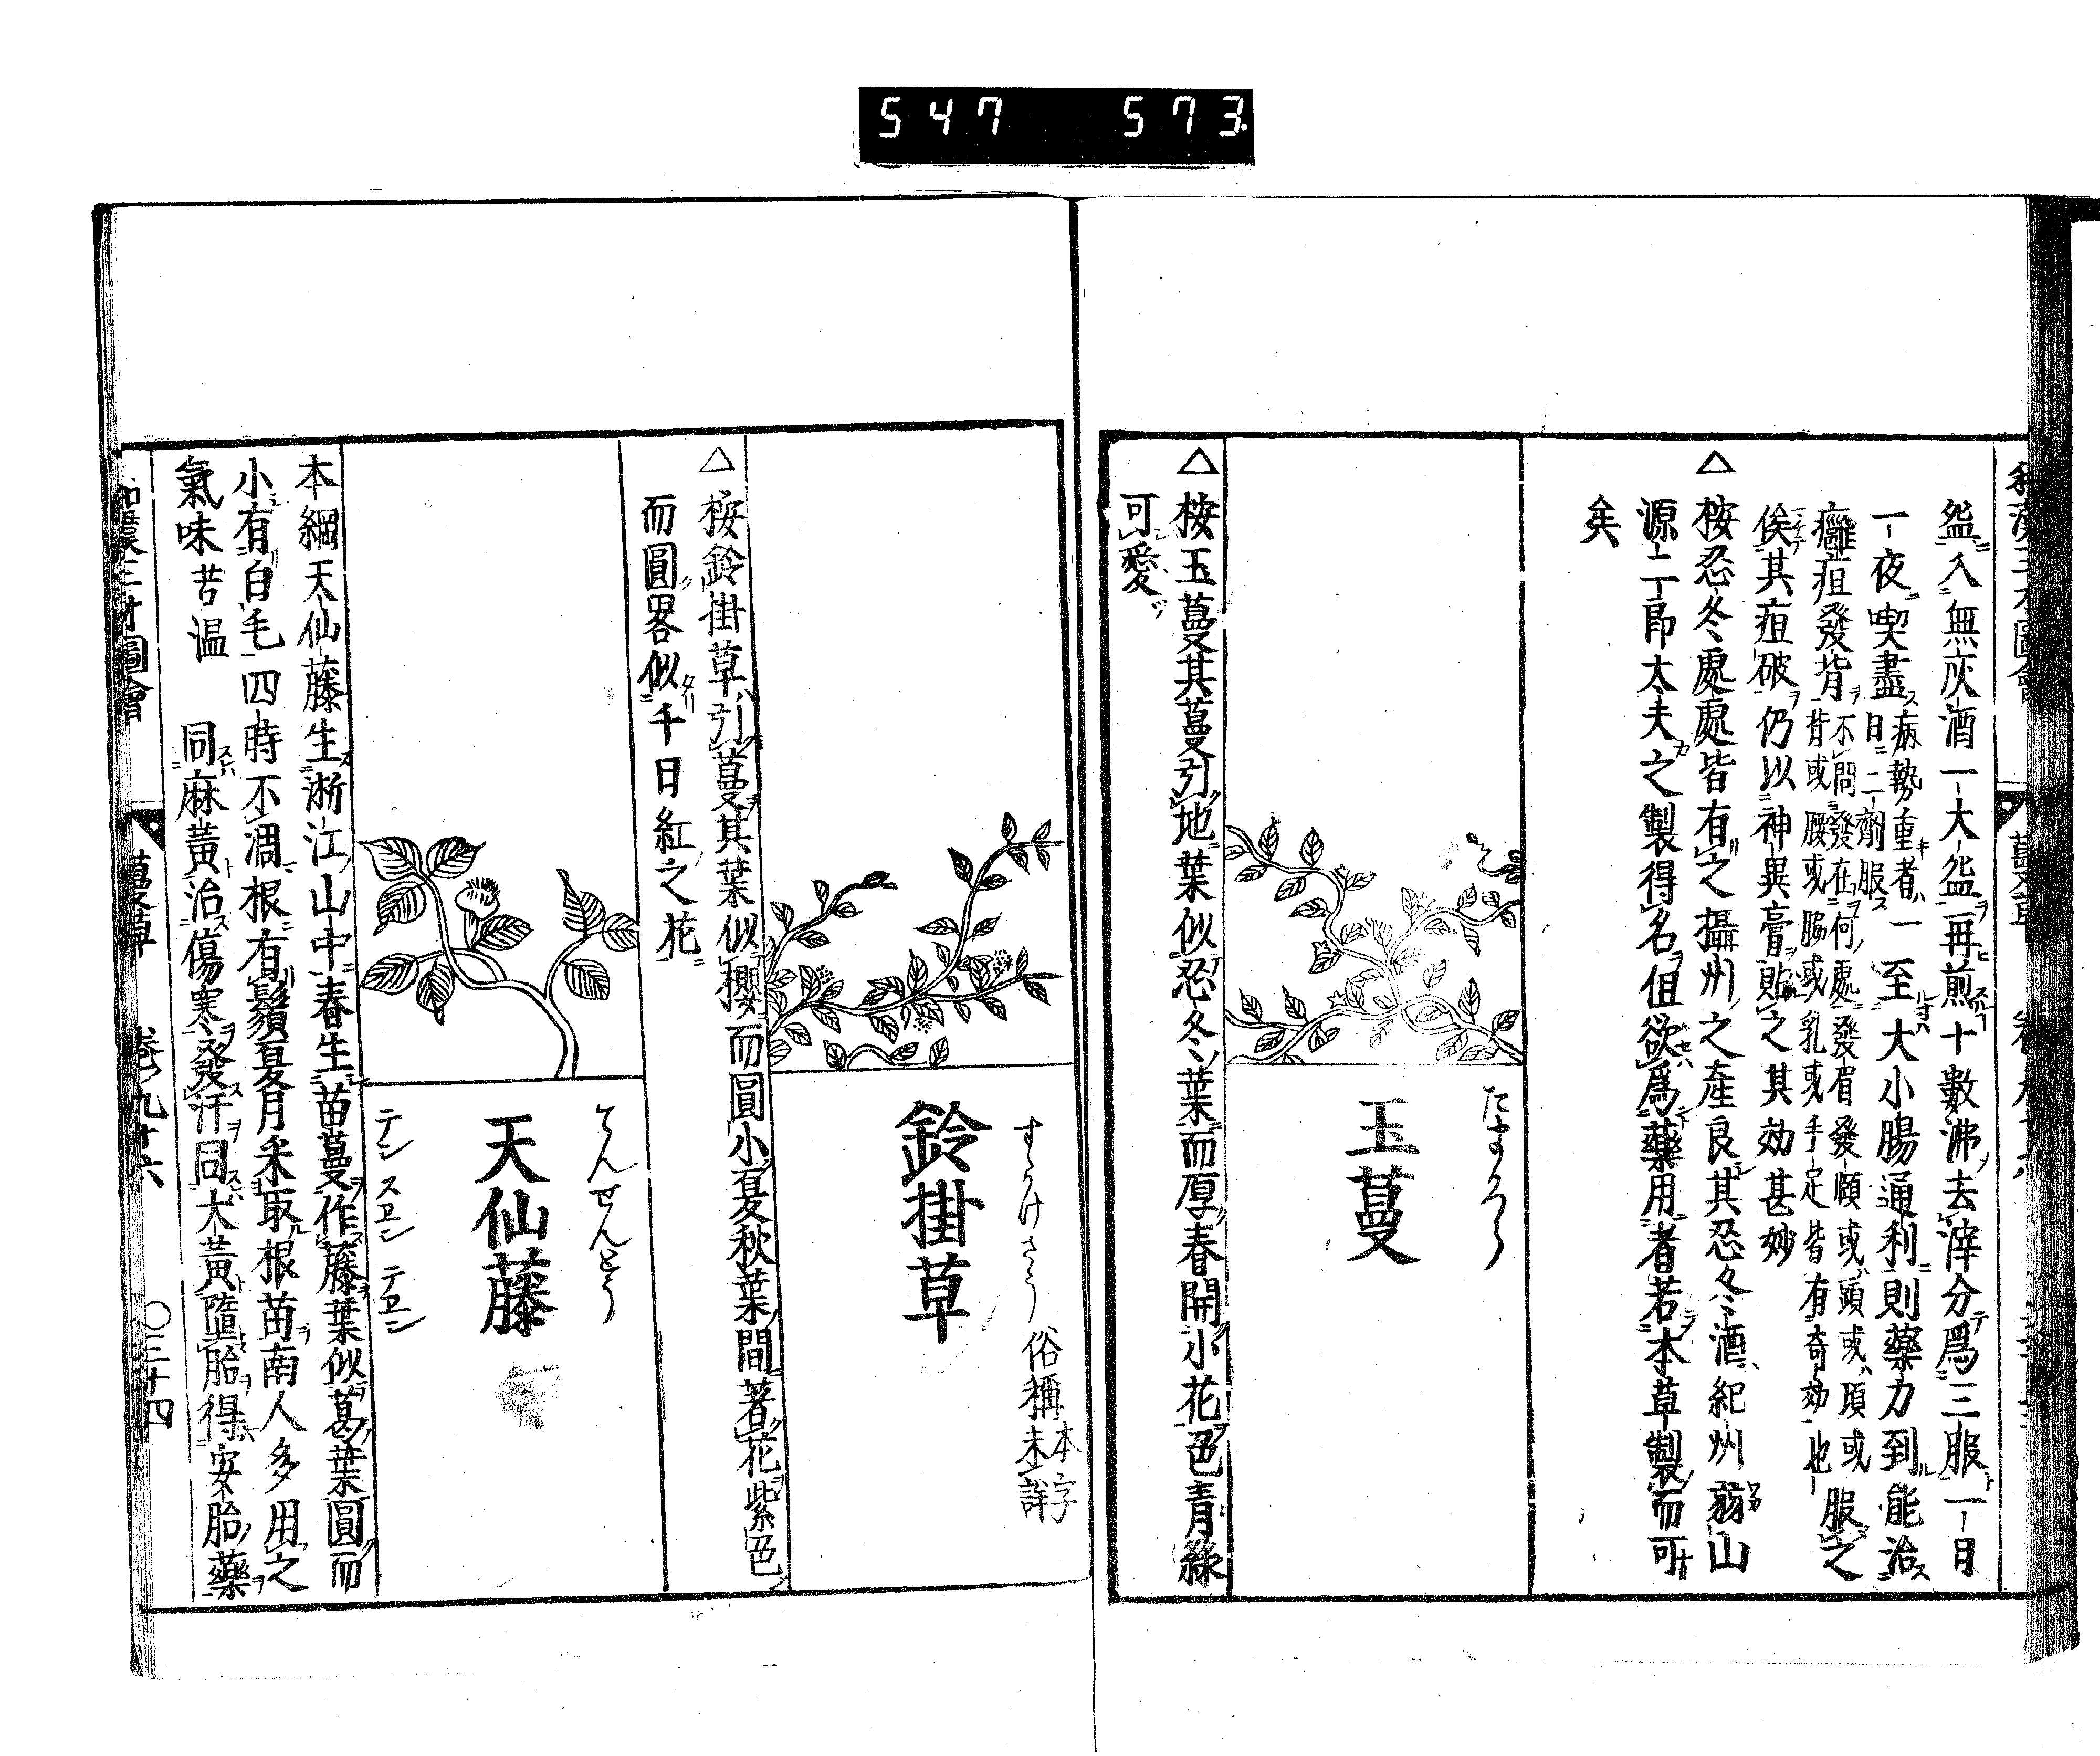 547 573.
盌入無灰酒一大盌再煎十數沸去滓分爲三服一日
一夜喫盡病勢重者一日二劑服至大小腸通利則藥力到能治
癰疽發背不問發在何處發眉發頤或頭或項或背或腰或脇或乳或手足皆有奇効也服之
俟其疽破仍以神異膏貼之其効甚妙
△按忍冬處處皆有之攝州之產良其忍冬酒紀州
山
源二郎太夫之製得名但欲爲藥用者若本草製而可
矣
たまかつら
玉蔓
△按玉蔓其蔓引地葉似忍冬葉而厚春開小花色青綠
可愛
すゝかけさう
俗稱
本字未詳
鈴掛草
△按鈴掛草引蔓其葉似櫻而圓小夏秋葉間著花紫色
而圓畧似千日紅之花
てんせんとう
天仙藤
テン スヱン テヱン
本綱天仙藤生浙江山中春生苗蔓作藤葉似葛葉圓而
小有白毛四時不凋根有鬚夏月采取根苗南人多用之
氣味苦温 同麻黃治傷寒發汗同大黃墮胎得安胎藥
和漢三才圖會 蔓草 卷九十六 〇三十四